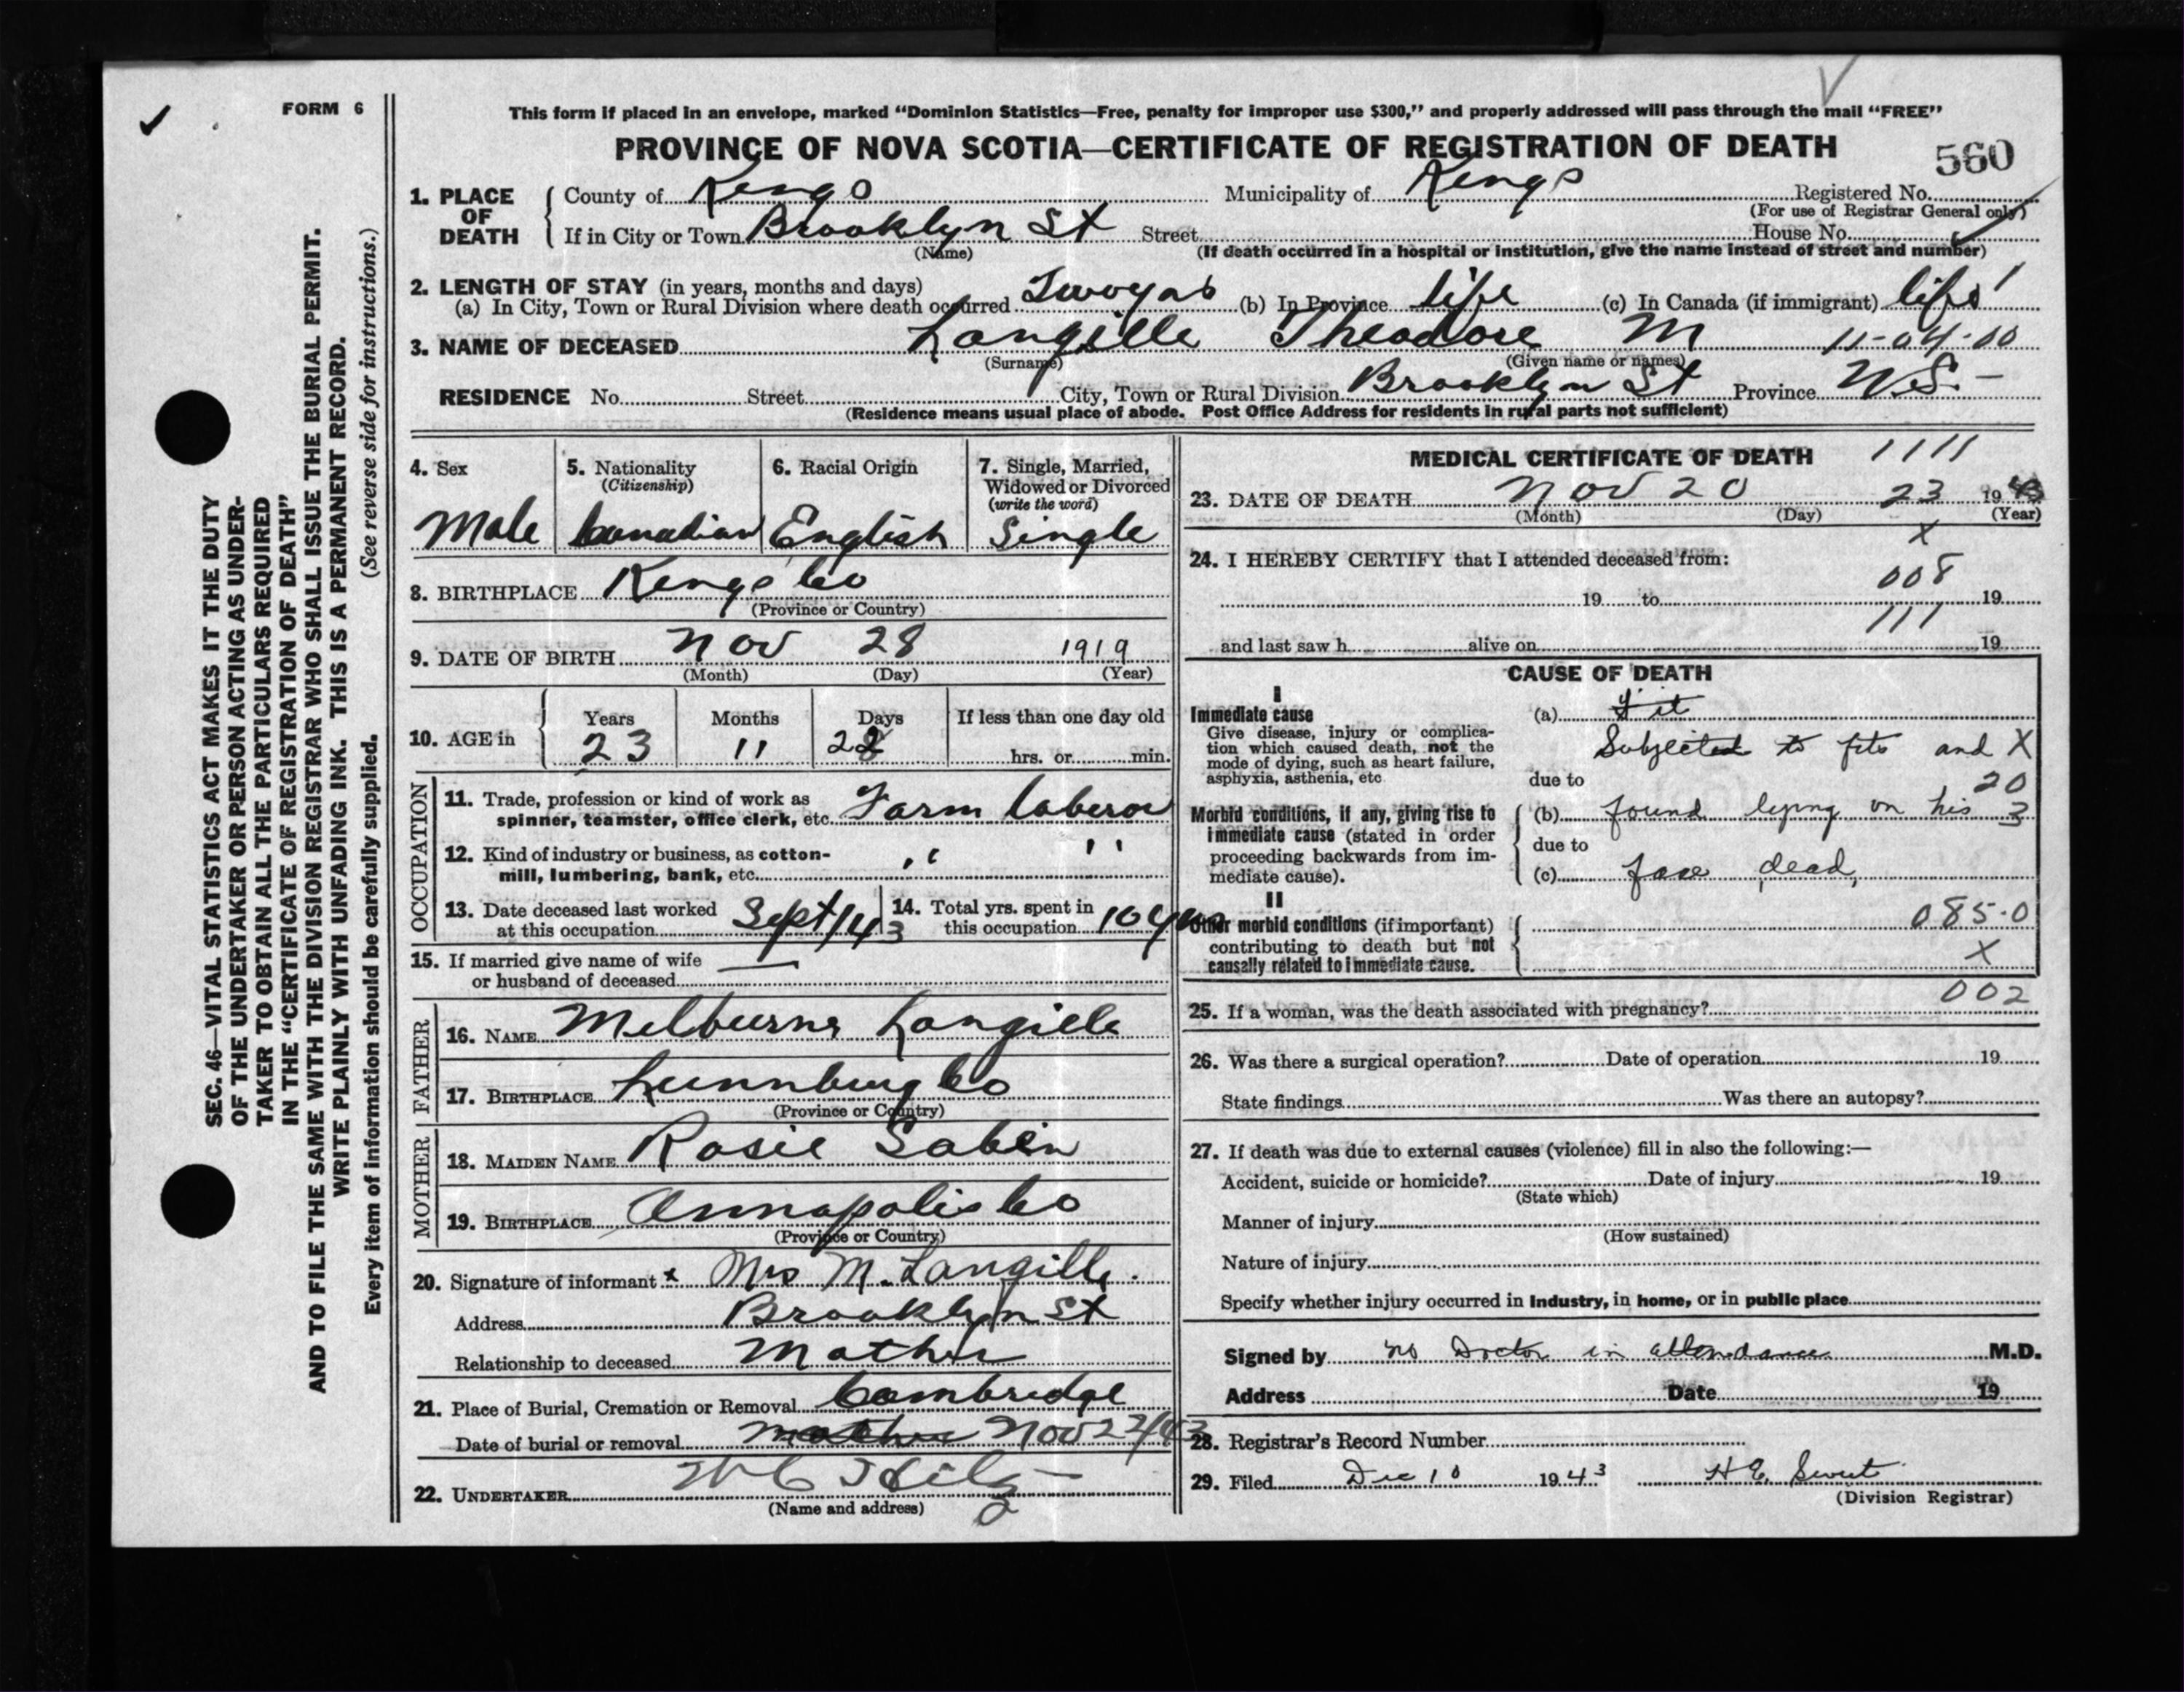 FORM 6
This form if placed in an envelope, marked “Dominion Statistics—Free, penalty for improper use $300,” and properly addressed will pass through the mail “FREE”
PROVINCE OF NOVA SCOTIA—CERTIFICATE OF REGISTRATION OF DEATH
560
1. PLACE OF DEATH
County of Kings Municipality of Kings Registered No.
(For use of Registrar General only)
If in City or Town Brooklyn St Street House No.
(Name) (If death occurred in a hospital or institution, give the name instead of street and number)
2. LENGTH OF STAY (in years, months and days)
(a) In City, Town or Rural Division where death occurred (b) In Province life (c) In Canada (if immigrant) life
3. NAME OF DECEASED Langille Theodore M 11-04-00
(Surname) (Given name or names)
RESIDENCE No. Street City, Town or Rural Division Brooklyn St Province N.S.
(Residence means usual place of abode. Post Office Address for residents in rural parts not sufficient)
4. Sex
Male
5. Nationality
(Citizenship)
Canadian
6. Racial Origin
English
7. Single, Married,
Widowed or Divorced
(write the word)
Single
8. BIRTHPLACE Kings Co
(Province or Country)
9. DATE OF BIRTH Nov 28 1919
(Month) (Day) (Year)
10. AGE in
Years Months Days If less than one day old
23 11 hrs. or min.
OCCUPATION
11. Trade, profession or kind of work as
spinner, teamster, office clerk, etc. Farm laberor
12. Kind of industry or business, as cotton-
mill, lumbering, bank, etc. " "
13. Date deceased last worked
at this occupation Sept/43
14. Total yrs. spent in
this occupation 10 yrs
15. If married give name of wife
or husband of deceased —
FATHER
16. NAME Melburne Langille
17. BIRTHPLACE Lunnburg Co
(Province or Country)
MOTHER
18. MAIDEN NAME Rosie Sabin
19. BIRTHPLACE Annapolis Co
(Province or Country)
20. Signature of informant x Mrs M. Langille.
Address Brooklyn St
Relationship to deceased Mother
21. Place of Burial, Cremation or Removal Cambridge
Date of burial or removal mother Nov
22. UNDERTAKER
(Name and address)
MEDICAL CERTIFICATE OF DEATH 1111
23. DATE OF DEATH Nov 20 23 1943
(Month) (Day) (Year)
X
24. I HEREBY CERTIFY that I attended deceased from:
008
19 to 19
111
and last saw h alive on 19
CAUSE OF DEATH
I
Immediate cause
Give disease, injury or complica-
tion which caused death, not the
mode of dying, such as heart failure,
asphyxia, asthenia, etc
(a) Fit
Subjected to fits and X
due to 20
Morbid conditions, if any, giving rise to
immediate cause (stated in order
proceeding backwards from im-
mediate cause).
(b) found lying on his 3
due to
(c) face dead,
II
Other morbid conditions (if important)
contributing to death but not
causally related to immediate cause.
085-0
X
002
25. If a woman, was the death associated with pregnancy?
26. Was there a surgical operation? Date of operation 19
State findings Was there an autopsy?
27. If death was due to external causes (violence) fill in also the following:—
Accident, suicide or homicide? Date of injury 19
(State which)
Manner of injury
(How sustained)
Nature of injury
Specify whether injury occurred in Industry, in home, or in public place
Signed by no Doctor in attendance M.D.
Address Date 19
28. Registrar's Record Number
29. Filed Dec 10 1943 H E Swet
(Division Registrar)
SEC. 46—VITAL STATISTICS ACT MAKES IT THE DUTY
OF THE UNDERTAKER OR PERSON ACTING AS UNDER-
TAKER TO OBTAIN ALL THE PARTICULARS REQUIRED
IN THE “CERTIFICATE OF REGISTRATION OF DEATH”
AND TO FILE THE SAME WITH THE DIVISION REGISTRAR WHO SHALL ISSUE THE BURIAL PERMIT.
WRITE PLAINLY WITH UNFADING INK. THIS IS A PERMANENT RECORD.
Every item of information should be carefully supplied. (See reverse side for instructions.)